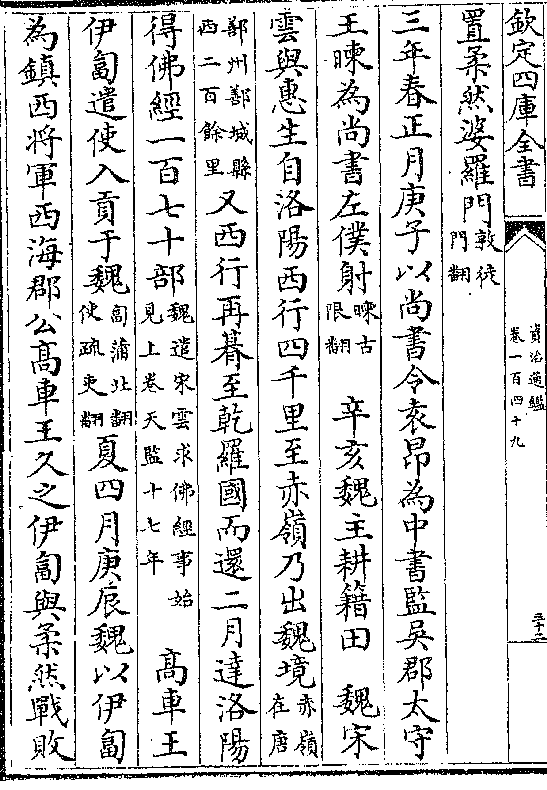 欽定四庫全書
資治通鑑
卷一百四十九
三十二
置柔然婆羅門敦徒
門翻
三年春正月庚子以尚書令袁昂為中書監吳郡太守
王暕為尚書左僕射暕古
限翻辛亥魏主耕籍田魏宋
雲與惠生自洛陽西行四千里至赤嶺乃出魏境赤嶺
在唐
鄯州鄯城縣
西二百餘里又西行再朞至乾羅國而還二月達洛陽
得佛經一百七十部魏遣宋雲求佛經事始
見上卷天監十七年高車王
伊匐遣使入貢于魏匐蒲北翻
使疏吏翻夏四月庚辰魏以伊匐
為鎮西將軍西海郡公高車王久之伊匐與柔然戰敗